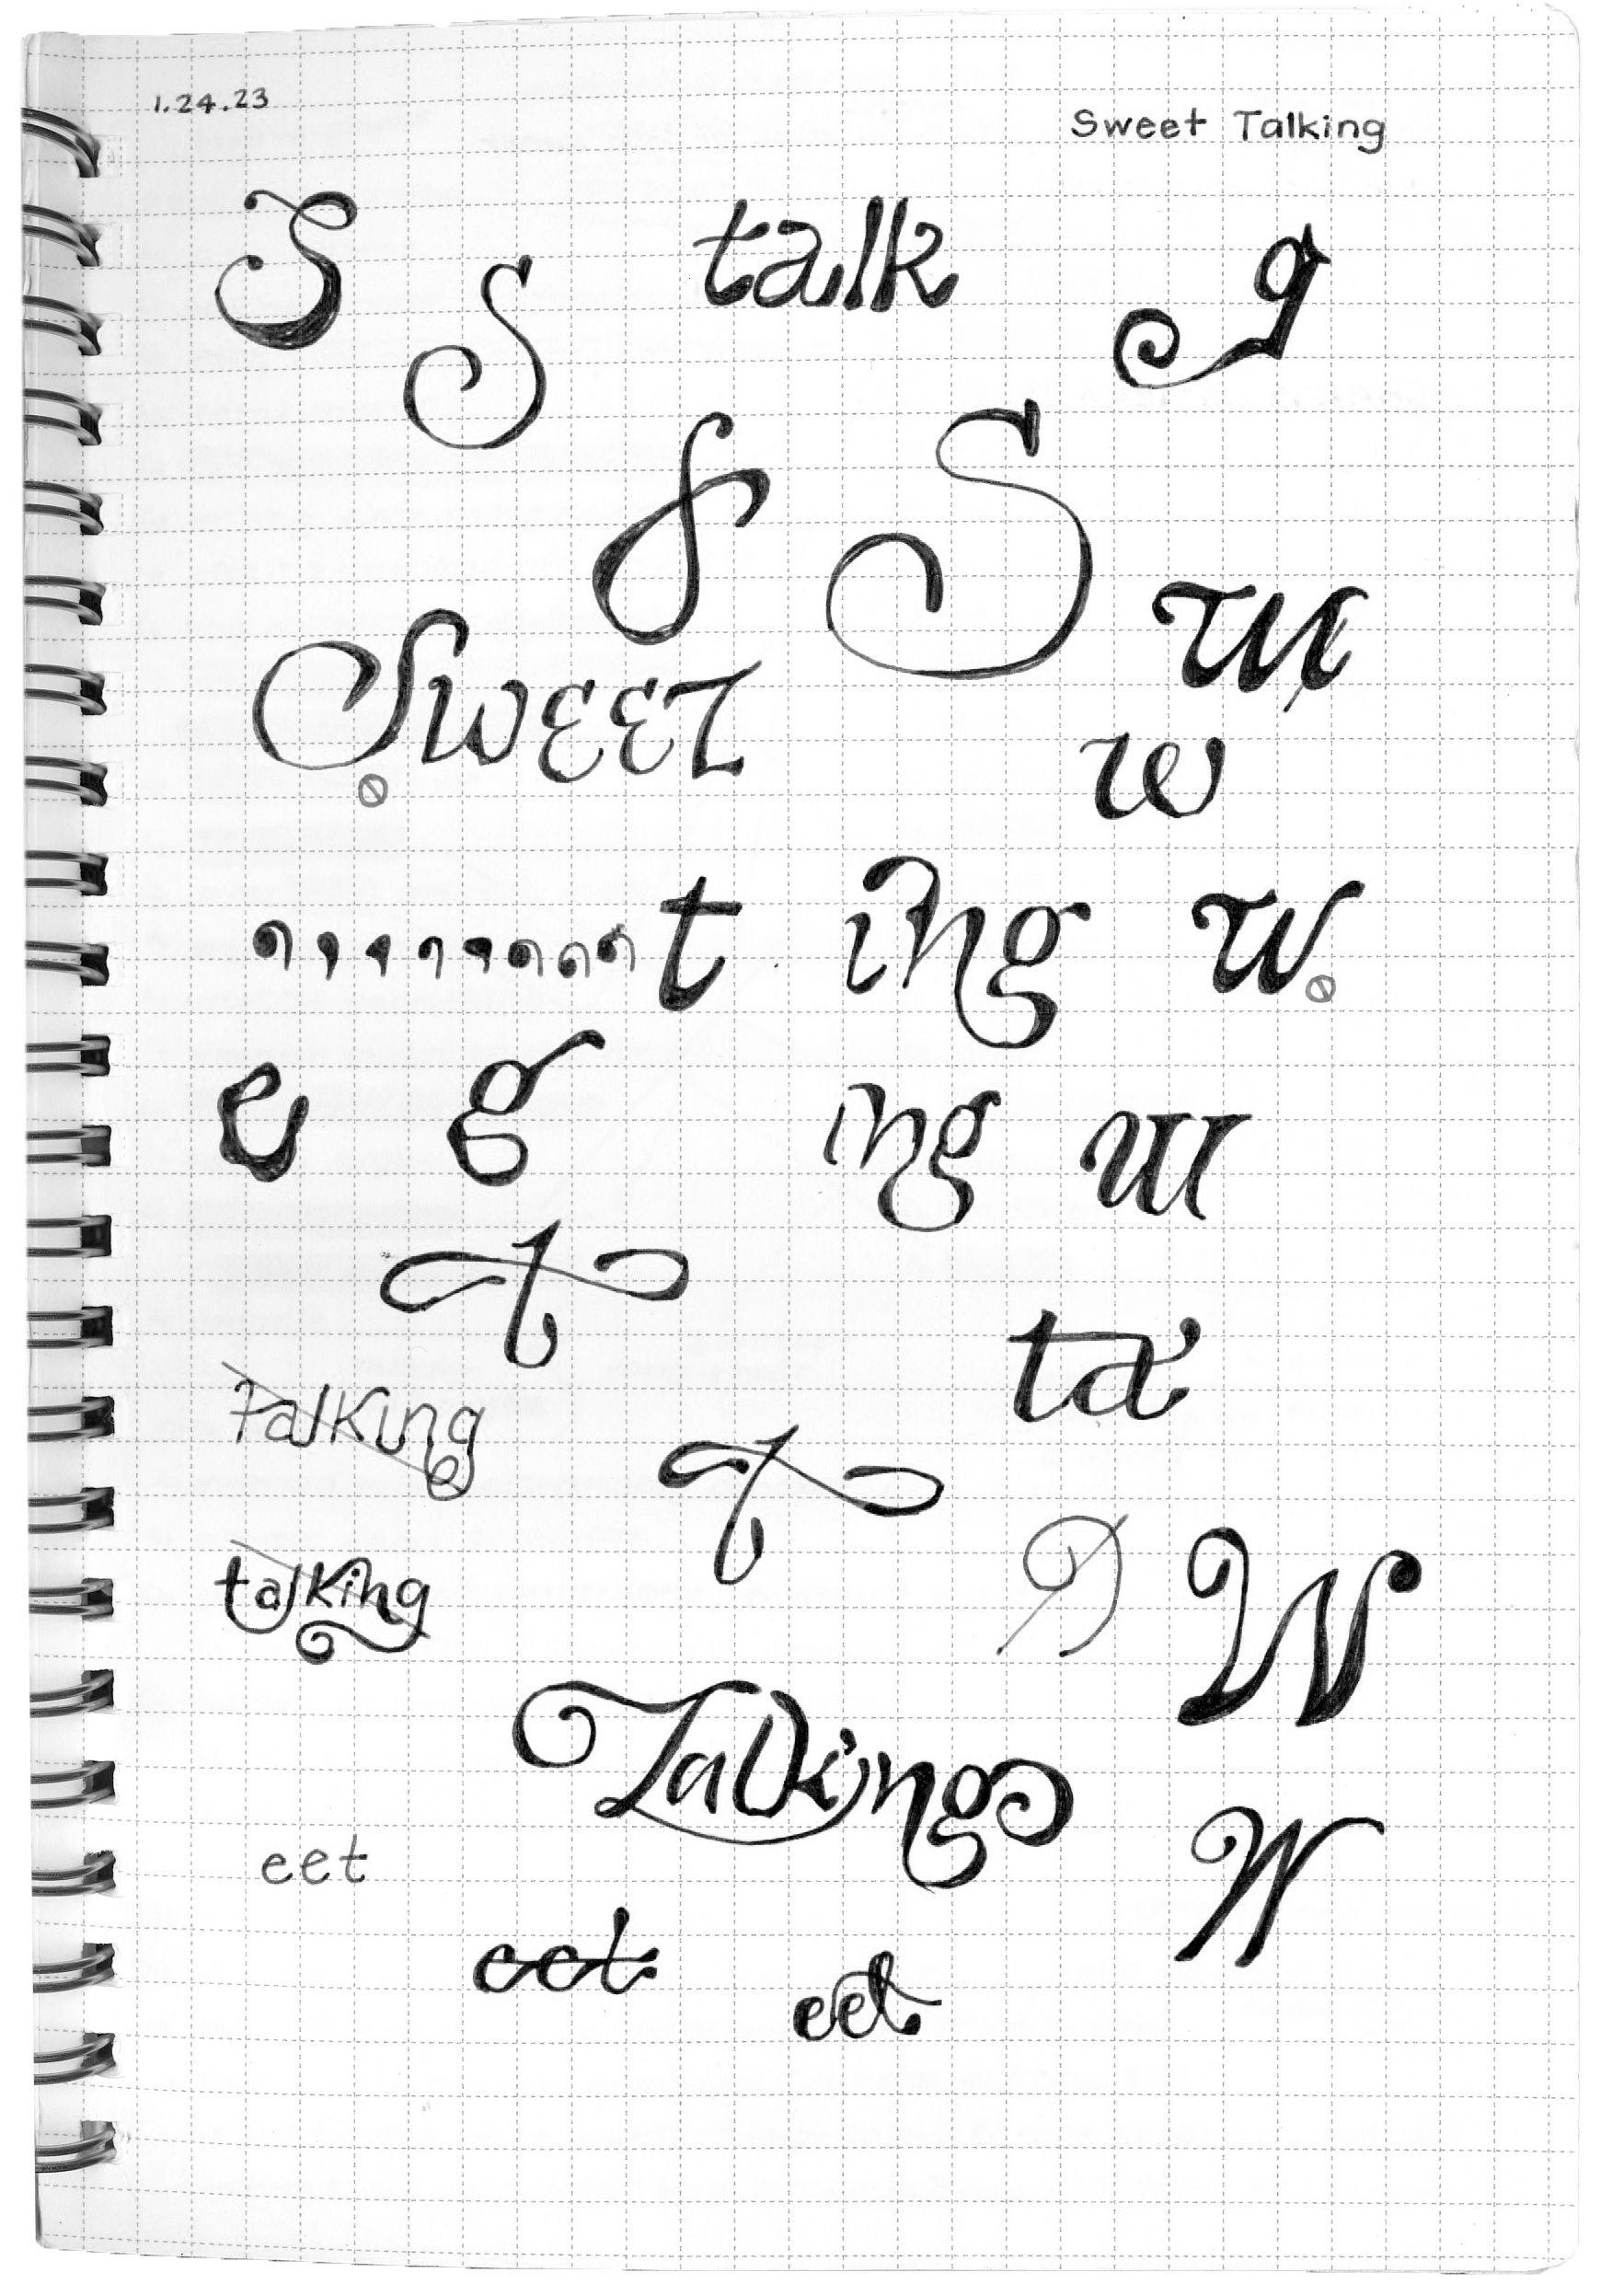 1.24.23
Sweet Talking
S
S
talk
g
S
S
w
Sweet
w
t
ing
w
e
g
ng
w
t
ta
Talking
t
talking
W
Talking
W
eet
eet
eet